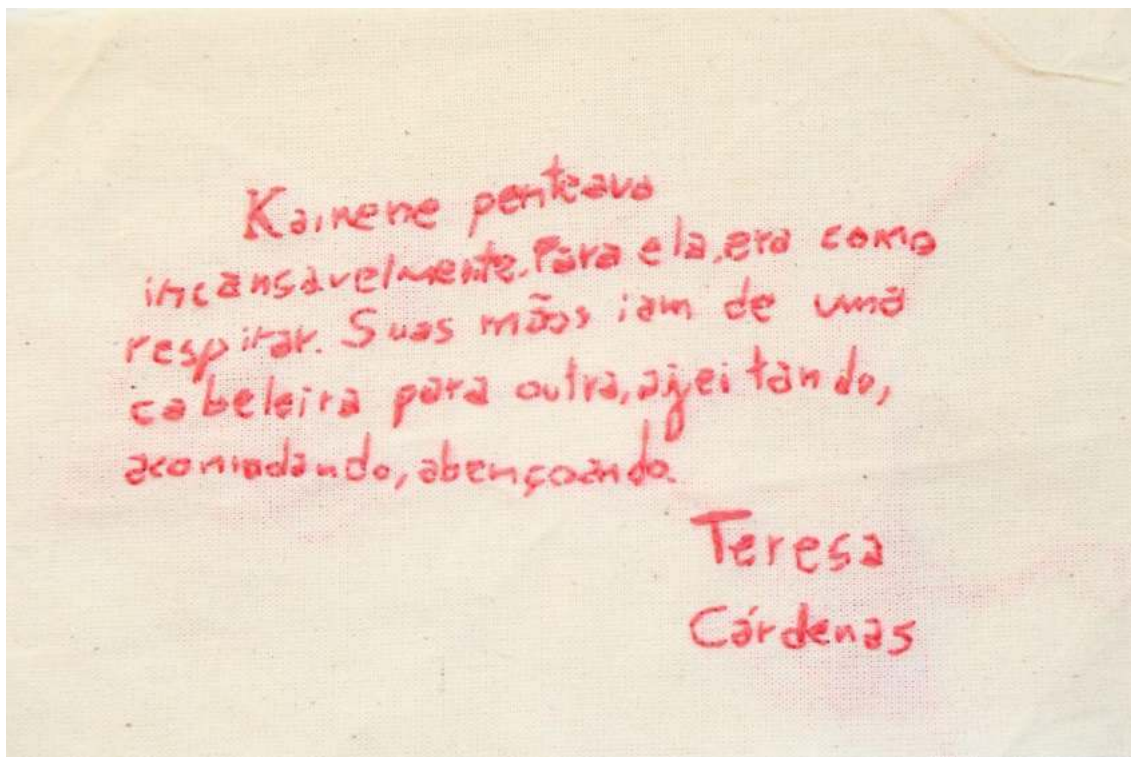 Kainene penteava
incansavelmente. Para ela, era como
respirar. Suas mãos iam de uma
cabeleira para outra, ajeitando,
acomodando, abençoando.
Teresa
Cárdenas